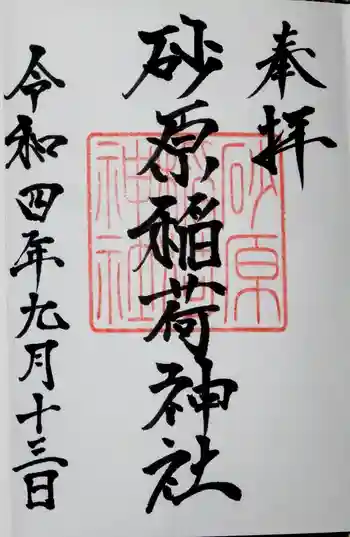 奉拝
砂原稲荷神社
令和四年九月十三日
砂原
稲荷
神社